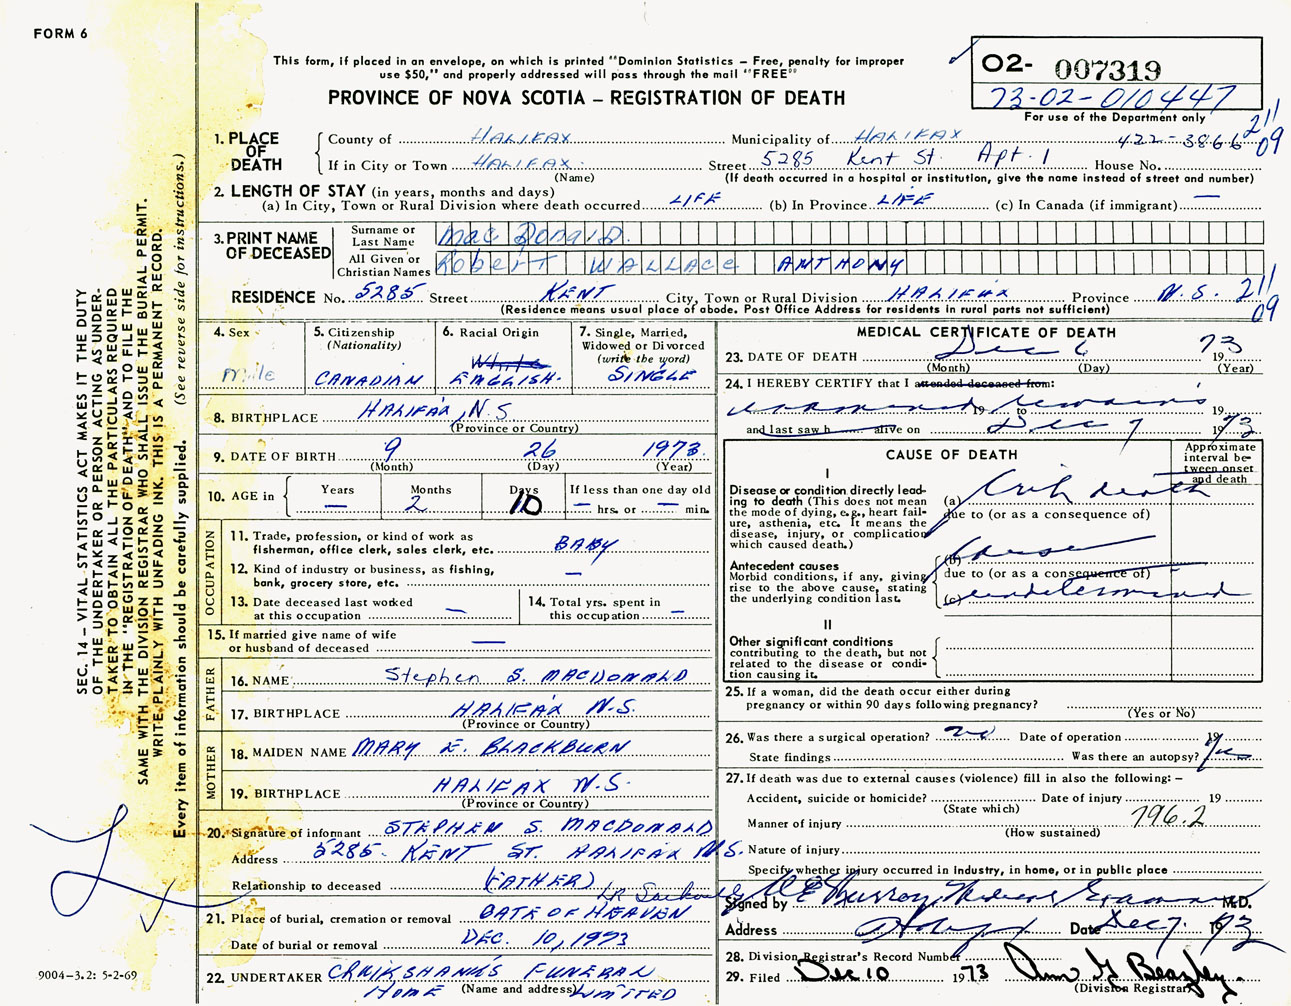 FORM 6
This form, if placed in an envelope, on which is printed "Dominion Statistics – Free, penalty for improper
use $50," and properly addressed will pass through the mail "FREE"
PROVINCE OF NOVA SCOTIA – REGISTRATION OF DEATH
02- 007319
73-02-010447
For use of the Department only
422-3866 211
09
1. PLACE OF DEATH
County of HALIFAX Municipality of HALIFAX
If in City or Town HALIFAX Street 5285 Kent St. Apt. 1 House No.
(Name) (If death occurred in a hospital or institution, give the name instead of street and number)
2. LENGTH OF STAY (in years, months and days)
(a) In City, Town or Rural Division where death occurred LIFE (b) In Province LIFE (c) In Canada (if immigrant) —
3. PRINT NAME OF DECEASED
Surname or Last Name MacDonald
All Given or Christian Names Robert WALLACE ANTHONY
RESIDENCE No. 5285 Street KENT City, Town or Rural Division HALIFAX Province N.S. 211
09
(Residence means usual place of abode. Post Office Address for residents in rural parts not sufficient)
4. Sex
male
5. Citizenship
(Nationality)
CANADIAN
6. Racial Origin
White
ENGLISH.
7. Single, Married,
Widowed or Divorced
(write the word)
SINGLE
8. BIRTHPLACE HALIFAX, N.S
(Province or Country)
9. DATE OF BIRTH 9 26 1973
(Month) (Day) (Year)
10. AGE in
Years Months Days If less than one day old
— 2 10 — hrs. or — min.
OCCUPATION
11. Trade, profession, or kind of work as
fisherman, office clerk, sales clerk, etc. BABY
12. Kind of industry or business, as fishing,
bank, grocery store, etc. —
13. Date deceased last worked
at this occupation —
14. Total yrs. spent in
this occupation —
15. If married give name of wife
or husband of deceased —
FATHER
16. NAME Stephen S. MACDONALD
17. BIRTHPLACE HALIFAX N.S.
(Province or Country)
MOTHER
18. MAIDEN NAME MARY E. BLACKBURN
19. BIRTHPLACE HALIFAX N.S.
(Province or Country)
20. Signature of informant STEPHEN S. MACDONALD
Address 5285 KENT ST. HALIFAX N.S.
Relationship to deceased (FATHER)
21. Place of burial, cremation or removal GATE OF HEAVEN LR Sackville
Date of burial or removal DEC. 10, 1973
22. UNDERTAKER CRUIKSHANKS FUNERAL
HOME (Name and address) LIMITED
MEDICAL CERTIFICATE OF DEATH
23. DATE OF DEATH Dec 6 1973
(Month) (Day) (Year)
24. I HEREBY CERTIFY that I attended deceased from:
examined 19 to remains 19
and last saw h alive on Dec 7 1973
CAUSE OF DEATH
Approximate interval between onset and death
I
Disease or condition directly lead-
ing to death (This does not mean
the mode of dying, e.g., heart fail-
ure, asthenia, etc. It means the
disease, injury, or complication
which caused death.)
(a) Crib death
due to (or as a consequence of)
Antecedent causes
Morbid conditions, if any, giving
rise to the above cause, stating
the underlying condition last.
(b) Cause
due to (or as a consequence of)
(c) undetermined
II
Other significant conditions
contributing to the death, but not
related to the disease or condi-
tion causing it.
25. If a woman, did the death occur either during
pregnancy or within 90 days following pregnancy?
(Yes or No)
26. Was there a surgical operation? no Date of operation 19
State findings Was there an autopsy? yes
27. If death was due to external causes (violence) fill in also the following: –
Accident, suicide or homicide? Date of injury 19
(State which)
Manner of injury 796.2
(How sustained)
Nature of injury
Specify whether injury occurred in Industry, in home, or in public place
Signed by Murray, Medical Examiner M.D.
Address Halifax Date Dec 7 1973
28. Division Registrar's Record Number
29. Filed Dec 10 1973 Ann G Beazley
(Division Registrar)
SEC. 14 – VITAL STATISTICS ACT MAKES IT THE DUTY
OF THE UNDERTAKER OR PERSON ACTING AS UNDER-
TAKER TO OBTAIN ALL THE PARTICULARS REQUIRED
IN THE "REGISTRATION OF DEATH" AND TO FILE THE
SAME WITH THE DIVISION REGISTRAR WHO SHALL ISSUE THE BURIAL PERMIT.
WRITE PLAINLY WITH UNFADING INK. THIS IS A PERMANENT RECORD.
Every item of information should be carefully supplied. (See reverse side for instructions.)
9004-3.2: 5-2-69